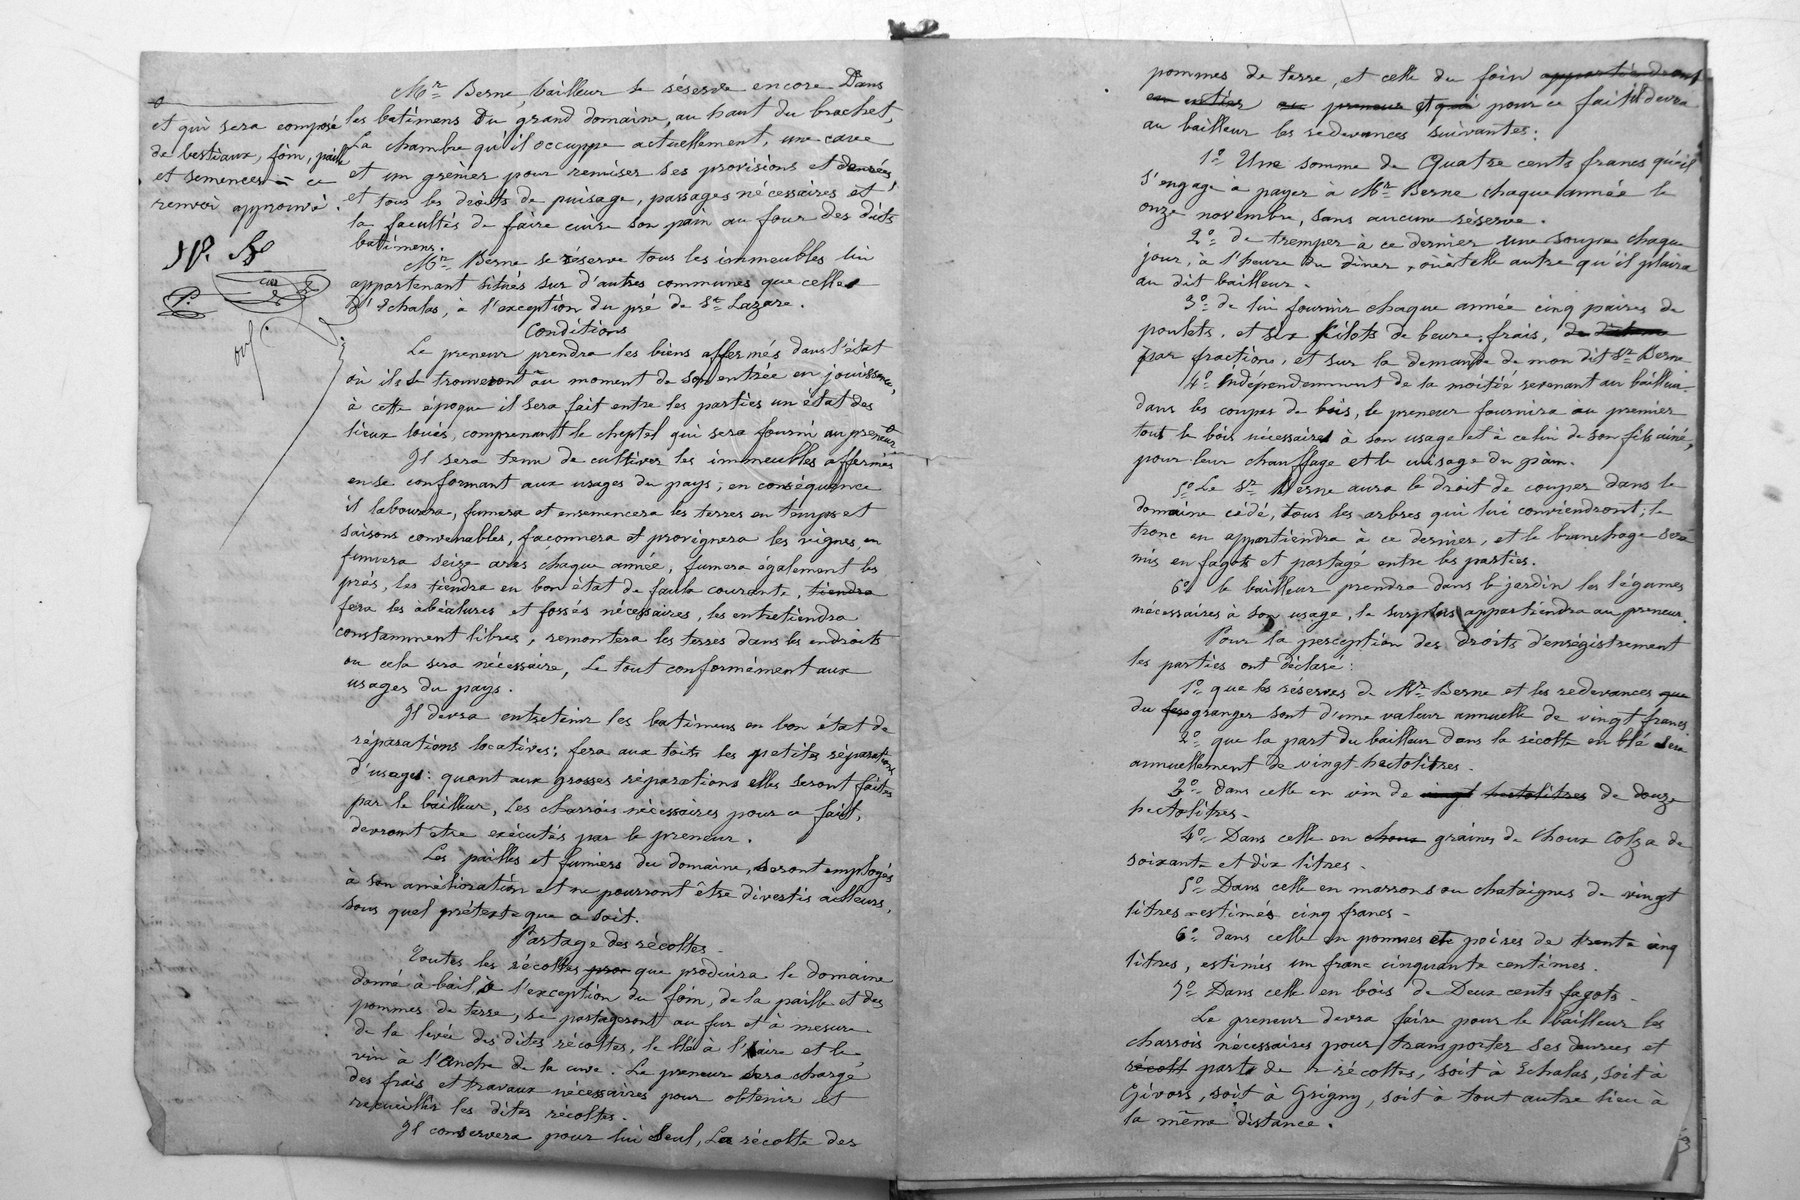 et qui sera composé
de bestiaux, foin, paille
et semences = ce
renvoi approuvé.
Mr. Berne, bailleur se réserve encore Dans
les batimens Du grand domaine, au haut du brachet,
La chambre qu'il occuppe actuellement, une cave
et un grenier pour remiser ses provisions et denrées,
et tous les droits de puisage, passages nécessaires et
la facultés de faire cuire son pain au four des dits
batimens.
Mr. Berne se réserve tous les immeubles lui
appartenant situés sur d'autres communes que celles
D'Echalas, à l'exception du pré de St. Lazare.
Conditions
Le preneur prendra les biens affermés dans l'état
où ils se trouveront au moment de son entrée en jouissance,
à cette époque il sera fait entre les parties un état des
lieux loués, comprenant le cheptel qui sera fourni au preneur
Il sera tenu de cultiver les immeubles affermés
en se conformant aux usages du pays; en conséquence
il labourera, fumera et ensemencera les terres en temps et
saisons convenables, façonnera et provignera les vignes, en
fumera seize ares chaque année, fumera également les
prés, les tiendra en bon état de faulx courante, tiendra
fera les abéalures et fossés nécessaires, les entretiendra
constamment libres, remontera les terres dans les endroits
ou cela sera nécessaire, Le tout conformément aux
usages du pays.
Il devra entretenir les batimens en bon état de
réparations locatives; fera aux toits les petites réparations
d'usage: quant aux grosses réparations elles seront faites
par le bailleur, Les charrois nécessaires pour ce fait,
devront etre exécutés par le preneur.
Les pailles et fumiers du domaine, seront employés
à son amélioration et ne pourront être divertis ailleurs,
sous quel prétexte que ce soit.
Partage des récoltes.
Toutes les récoltes pror que produira le domaine
donné à bail, à l'exception du foin, de la paille et des
pommes de terre, se partageront au fur et à mesure
de la levée des dites récoltes, le blé à l'aire et le
vin à l'anche de la cuve. Le preneur sera chargé
des frais et travaux nécessaires pour obtenir et
recueillir les dites récoltes.
Il conservera pour lui seul, La récolte des
pommes de terre, et celle du foin appartiendront
en entier au preneur et qui pour ce fait il devra
au bailleur les redevances suivantes:
1º Une somme de Quatre cents francs qu'il
s'engage à payer à Mr. Berne chaque année le
onze novembre, sans aucune réserve.
2º de tremper à ce dernier une soupe chaque
jour, à l'heure du dîner, où à telle autre qu'il plaira
au dit bailleur.
3º de lui fournir chaque année cinq paires de
poulets, et six kilots de beure frais,
par fractions, et sur la demande de mon dit Sr. Berne
4º Indépendemment de la moitié revenant au bailleur
dans les coupes de bois, le preneur fournira au premier
tout le bois nécessaires à son usage et à celui de son fils ainé,
pour leur chauffage et le cuisage du pain.
5º Le Sr. Berne aura le droit de couper dans le
domaine cédé, tous les arbres qui lui conviendront; le
tronc en appartiendra à ce dernier, et le branchage sera
mis en fagots et partagé entre les parties.
6º le bailleur prendra dans le jardin les légumes
nécessaires à son usage, le surplus appartiendra au preneur.
Pour la perception des droits d'enrégistrement
les parties ont déclaré:
1º que les réserves de Mr. Berne et les redevances que
du granger sont d'une valeur annuelle de vingt francs.
2º que la part du bailleur dans la récolte en blé sera
annuellement de vingt hectolitres.
3º Dans celle en vin de vingt hectolitres de douze
hectolitres.
4º Dans celle en choux graines de choux colza de
soixante et dix litres.
5º Dans celle en marrons ou chataignes de vingt
litres estimés cinq francs.
6º dans celle en pommes et poires de trente cinq
litres, estimés un franc cinquante centimes.
7º Dans celle en bois de Deux cents fagots.
Le preneur devra faire pour le bailleur les
charrois nécessaires pour transporter ses denrees et
récolt parts de récoltes, soit à Echalas, soit à
Givors, soit à Grigny, soit à tout autre lieu à
la même distance.
3